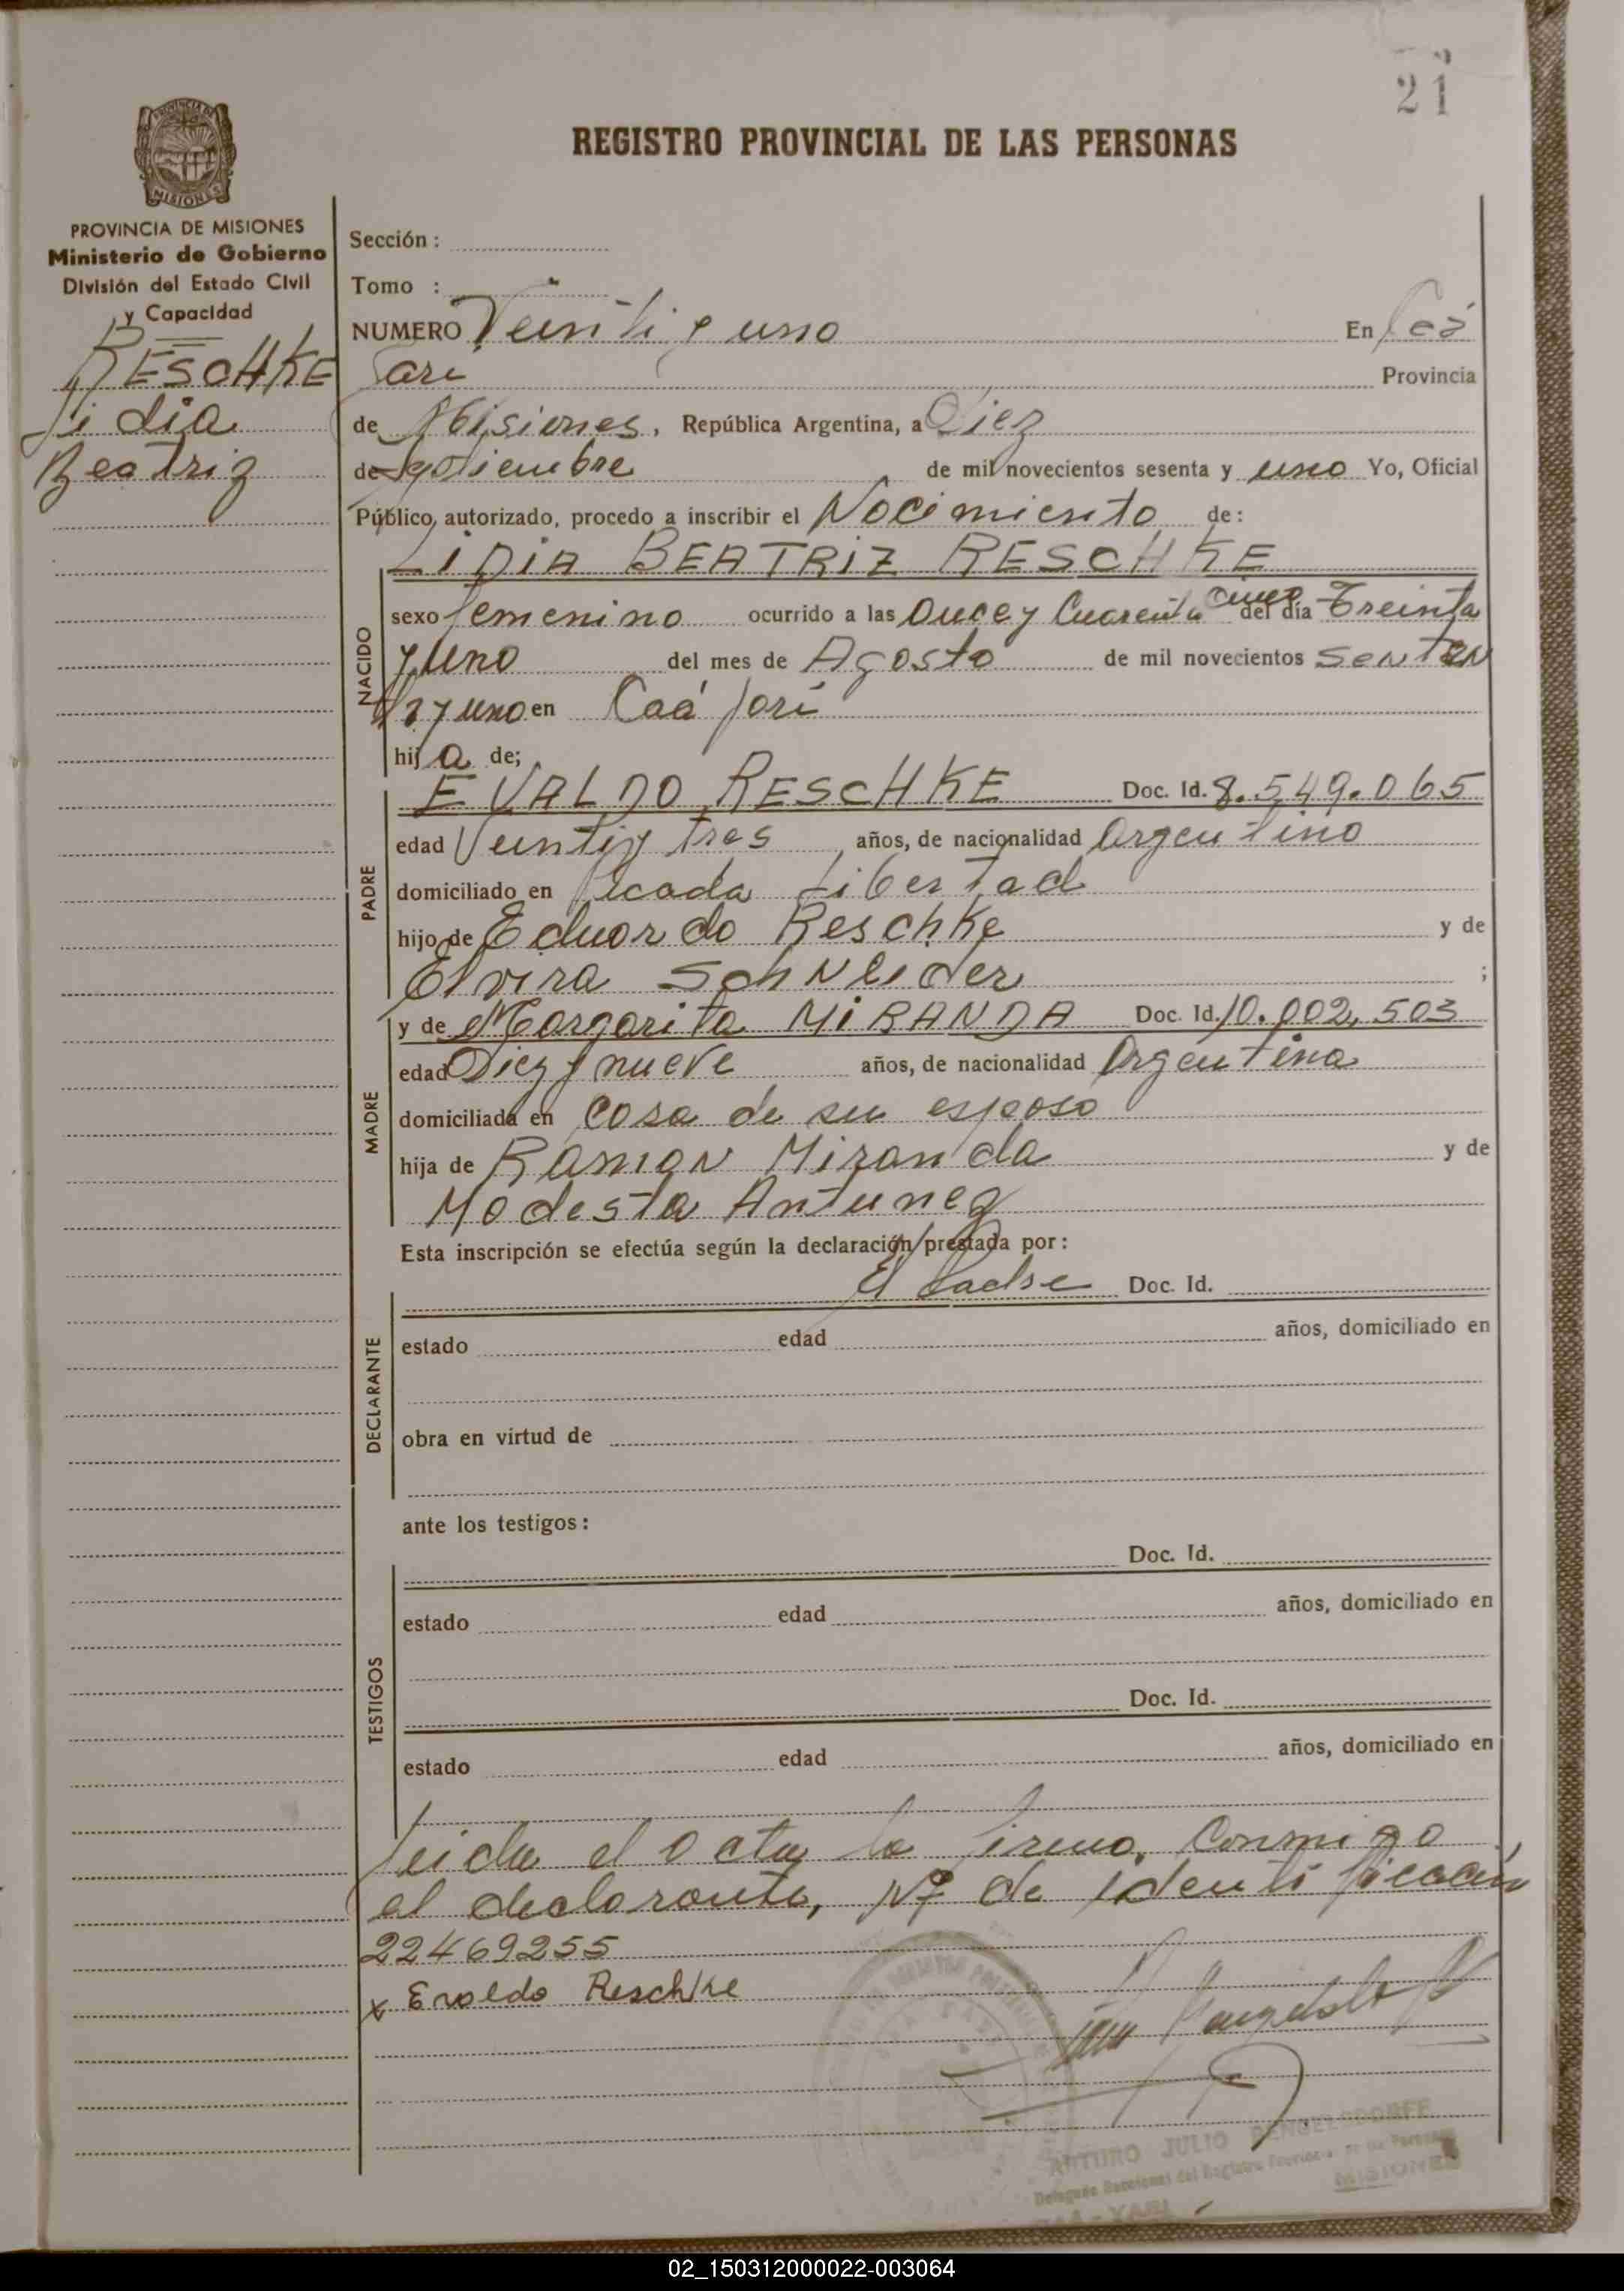 21
REGISTRO PROVINCIAL DE LAS PERSONAS
PROVINCIA DE MISIONES
MISIONES
PROVINCIA DE MISIONES
Ministerio de Gobierno
División del Estado Civil
y Capacidad
RESCHKE
Lidia
Beatriz
Sección :
Tomo :
NUMERO Veinti y uno En Caá
Yari Provincia
de Misiones, República Argentina, a Diez
de Septiembre de mil novecientos sesenta y uno Yo, Oficial
Público autorizado, procedo a inscribir el Nacimiento de:
LIDIA BEATRIZ RESCHKE
NACIDO
sexo femenino ocurrido a las Once y Cuarenta cinco del día Treinta
y uno del mes de Agosto de mil novecientos
y uno en Caá Yari
hija de;
PADRE
EVALDO RESCHKE Doc. Id. 8.549.065
edad Veinti y tres años, de nacionalidad Argentino
domiciliado en Picada Libertad
hijo de Eduardo Reschke y de
Elvira Schneider ;
MADRE
y de Margarita MIRANDA Doc. Id. 10.002.503
edad Diez y nueve años, de nacionalidad Argentina
domiciliada en Casa de su esposo
hija de Ramon Miranda y de
Modesta Antunez
Esta inscripción se efectúa según la declaración prestada por :
DECLARANTE
El Padre Doc. Id.
estado edad años, domiciliado en
obra en virtud de
ante los testigos :
TESTIGOS
Doc. Id.
estado edad años, domiciliado en
Doc. Id.
estado edad años, domiciliado en
Leida el acta la firma conmigo
el declarante, Nº de identificación
22469255
x Evaldo Reschke
ARTURO JULIO DENGELSDORFF
Delegado Seccional del Registro Provincial de las Personas
CAÁ-YARI MISIONES
02_150312000022-003064